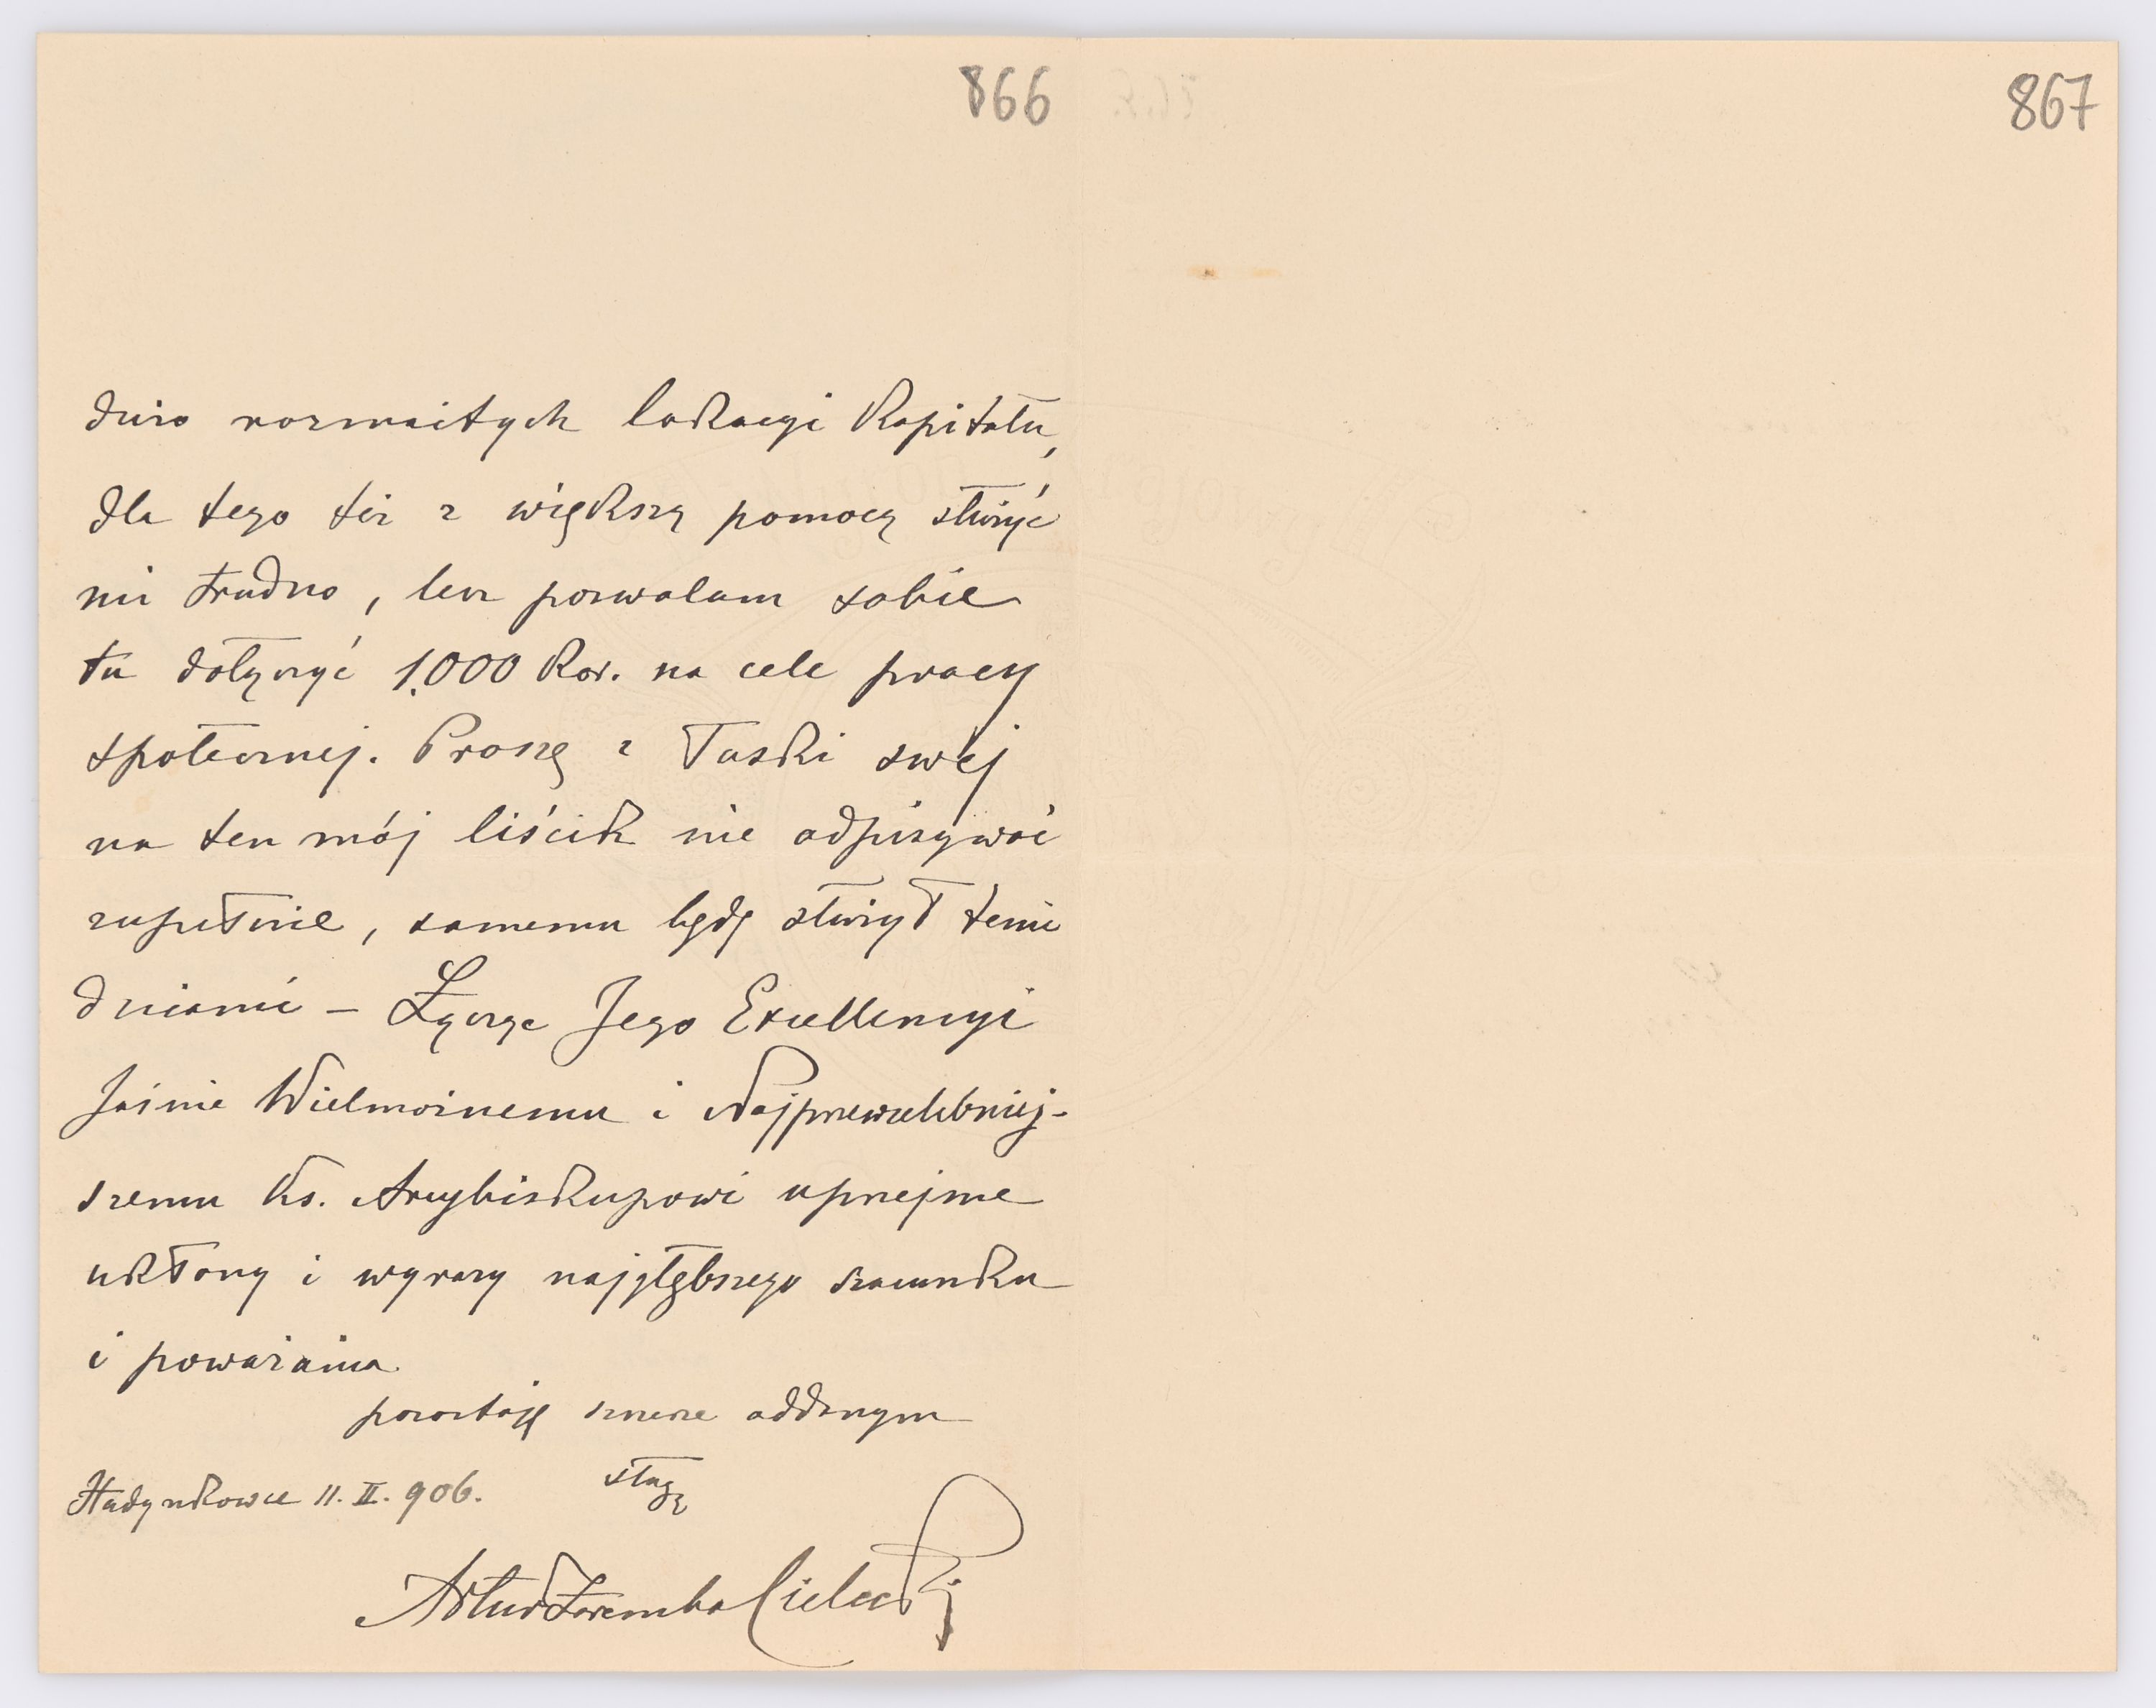 866
867
dużo rozmaitych lokacyi kapitału,
dla tego też z większą pomocą służyć
mi trudno, lecz pozwalam sobie
tu dołączyć 1.000 Kor. na cele pracy
społecznej. Proszę z Łaski swej
na ten mój liścik nie odpisywać
zupełnie, samemu będę służył temi
dniami – Łączę Jego Excellencyi
Jaśnie Wielmożnemu i Najprzewielebniej-
szemu Ks. Arcybiskupowi uprzejme
ukłony i wyrazy najgłębszego szacunku
i poważania
pozostaję szczerze oddanym
sługą
Hadynkowce 11. II. 906.
Artur Zaremba Cielecki